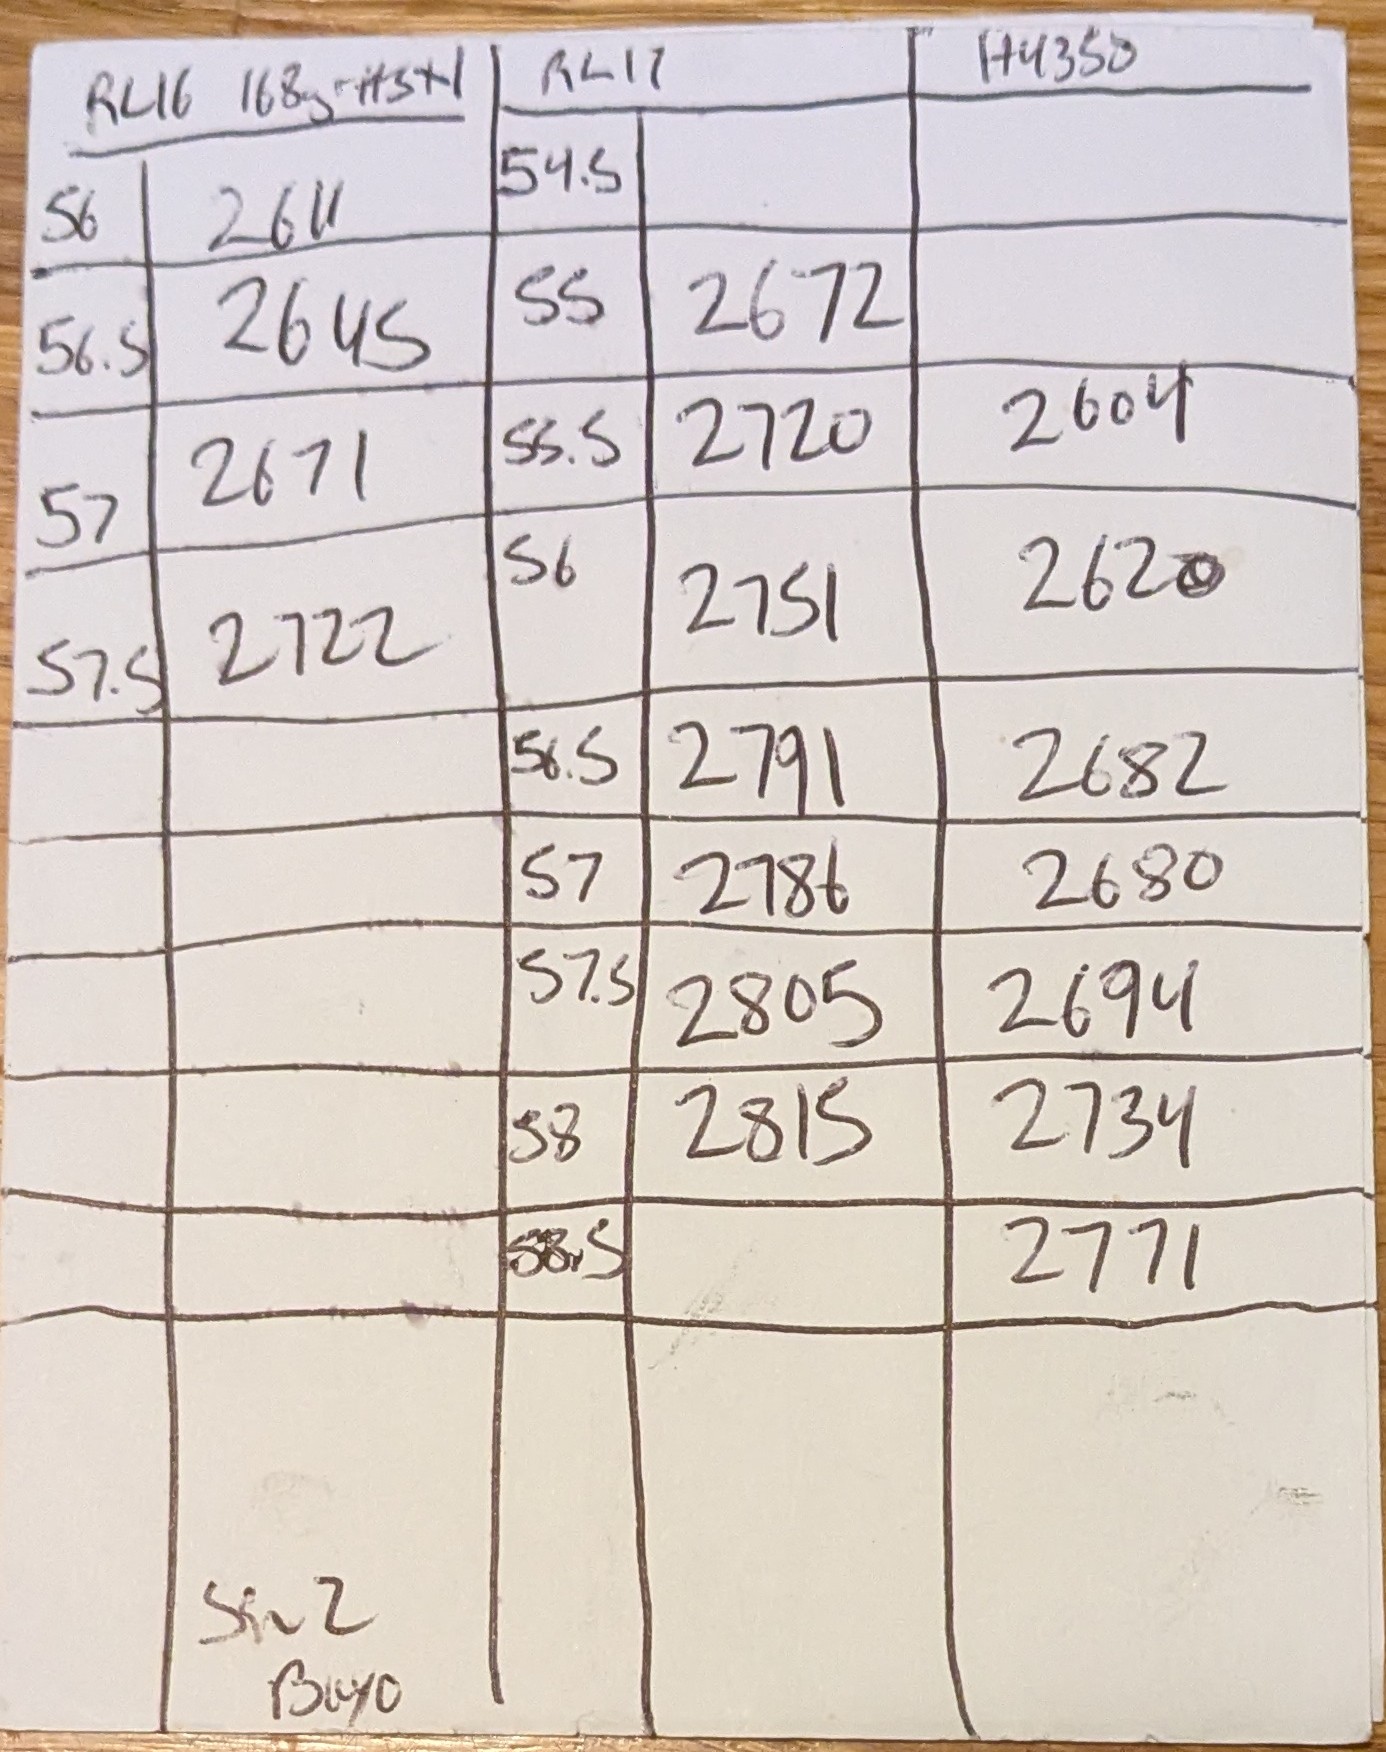 RL16 168g-HSXI
RL17
H4350
54.5
56 2611
55 2672
56.5 2645
55.5 2720 2604
57 2671
56 2751 2620
57.5 2722
56.5 2791 2682
57 2786 2680
57.5 2805 2694
58 2815 2734
58.5 2771